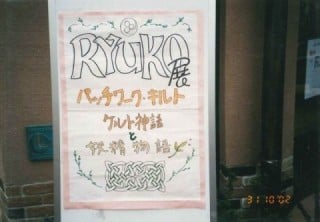 RYUKA展
パッチワーク・キルト
ケルト神話
と
妖精物語
31 10 '02